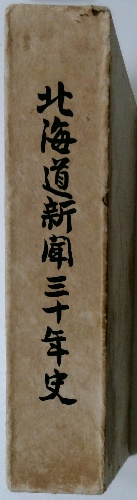 北海道新聞三十年史